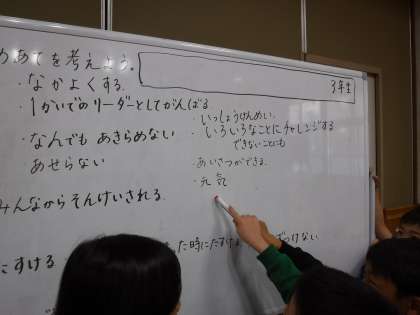 めあてを考えよう。
3年生
・なかよくする。
・1かいでのリーダーとしてがんばる
・なんでもあきらめない
あせらない
みんなからそんけいされる。
・いっしょうけんめい。
・いろいろなことにチャレンジする
できないことにも
・あいさつができる。
・元気
にすける
た時にたすけ
つけない